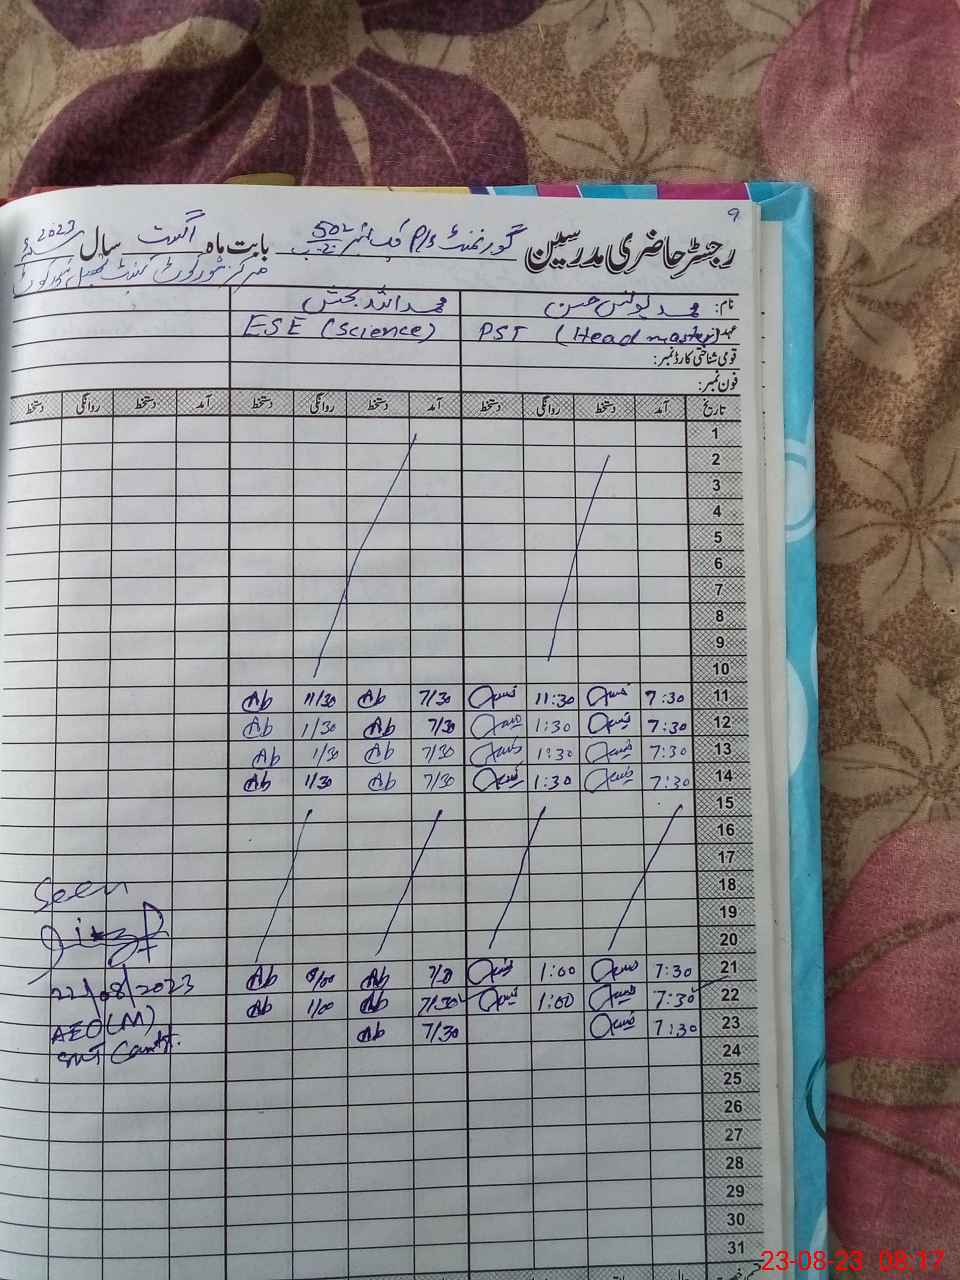 9
رجسٹر حاضری مدرسین گورنمنٹ P/S چک نمبر 502 بابت ماہ اگست سال 2023ء
مرکز شورکوٹ کینٹ تحصیل شورکوٹ
نام: محمد یونس حسن محمد اللہ بخش
عہدہ PST (Head master) ESE (Science)
قومی شناختی کارڈ نمبر:
فون نمبر:
تاریخ آمد دستخط روانگی دستخط آمد دستخط روانگی دستخط آمد دستخط روانگی دستخط
1
2
3
4
5
6
7
8
9
10
11 7:30 11:30 7/30 Ab 11/30 Ab
12 7:30 1:30 7/30 Ab 1/30 Ab
13 7:30 1:30 7/30 Ab 1/30 Ab
14 7:30 1:30 7/30 Ab 1/30 Ab
15
16
17
18
Seen
19
20
21 7:30 1:00 Ab Ab
22/08/2023
22 7:30 1:00 7/30 Ab 1/00 Ab
AEO (M)
23 7:30 7/30 Ab
24
25
26
27
28
29
30
31
23-08-23 08:17